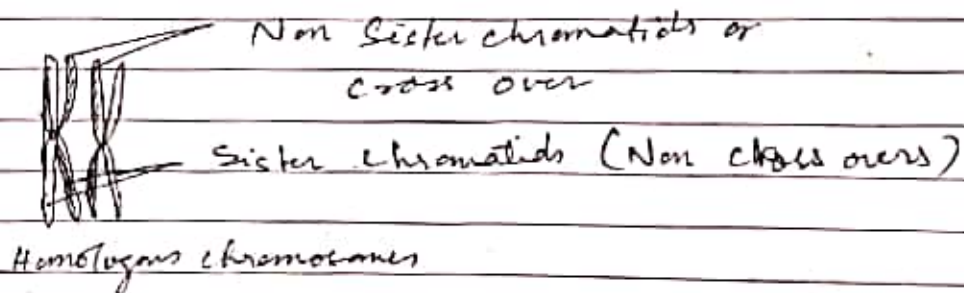 Non Sister chromatids or
cross over
Sister chromatids (Non cross overs)
Homologous chromosomes